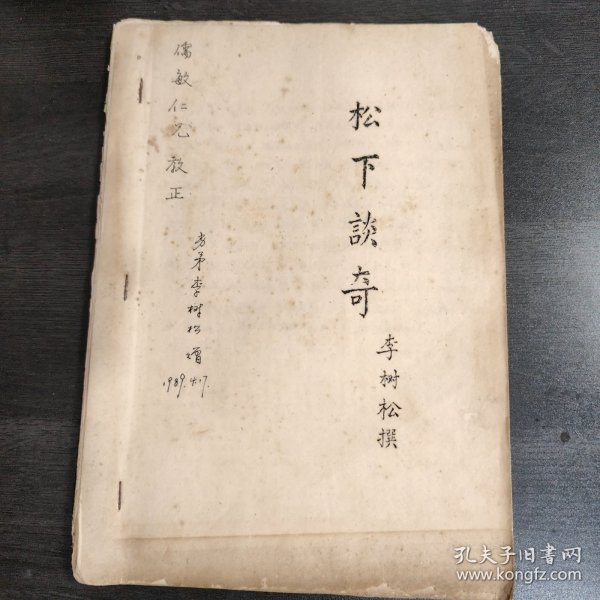 松下談奇
李树松撰
儒敏仁兄教正
弟李树松赠
1989.4.17.
孔夫子旧书网
www.kongfz.com